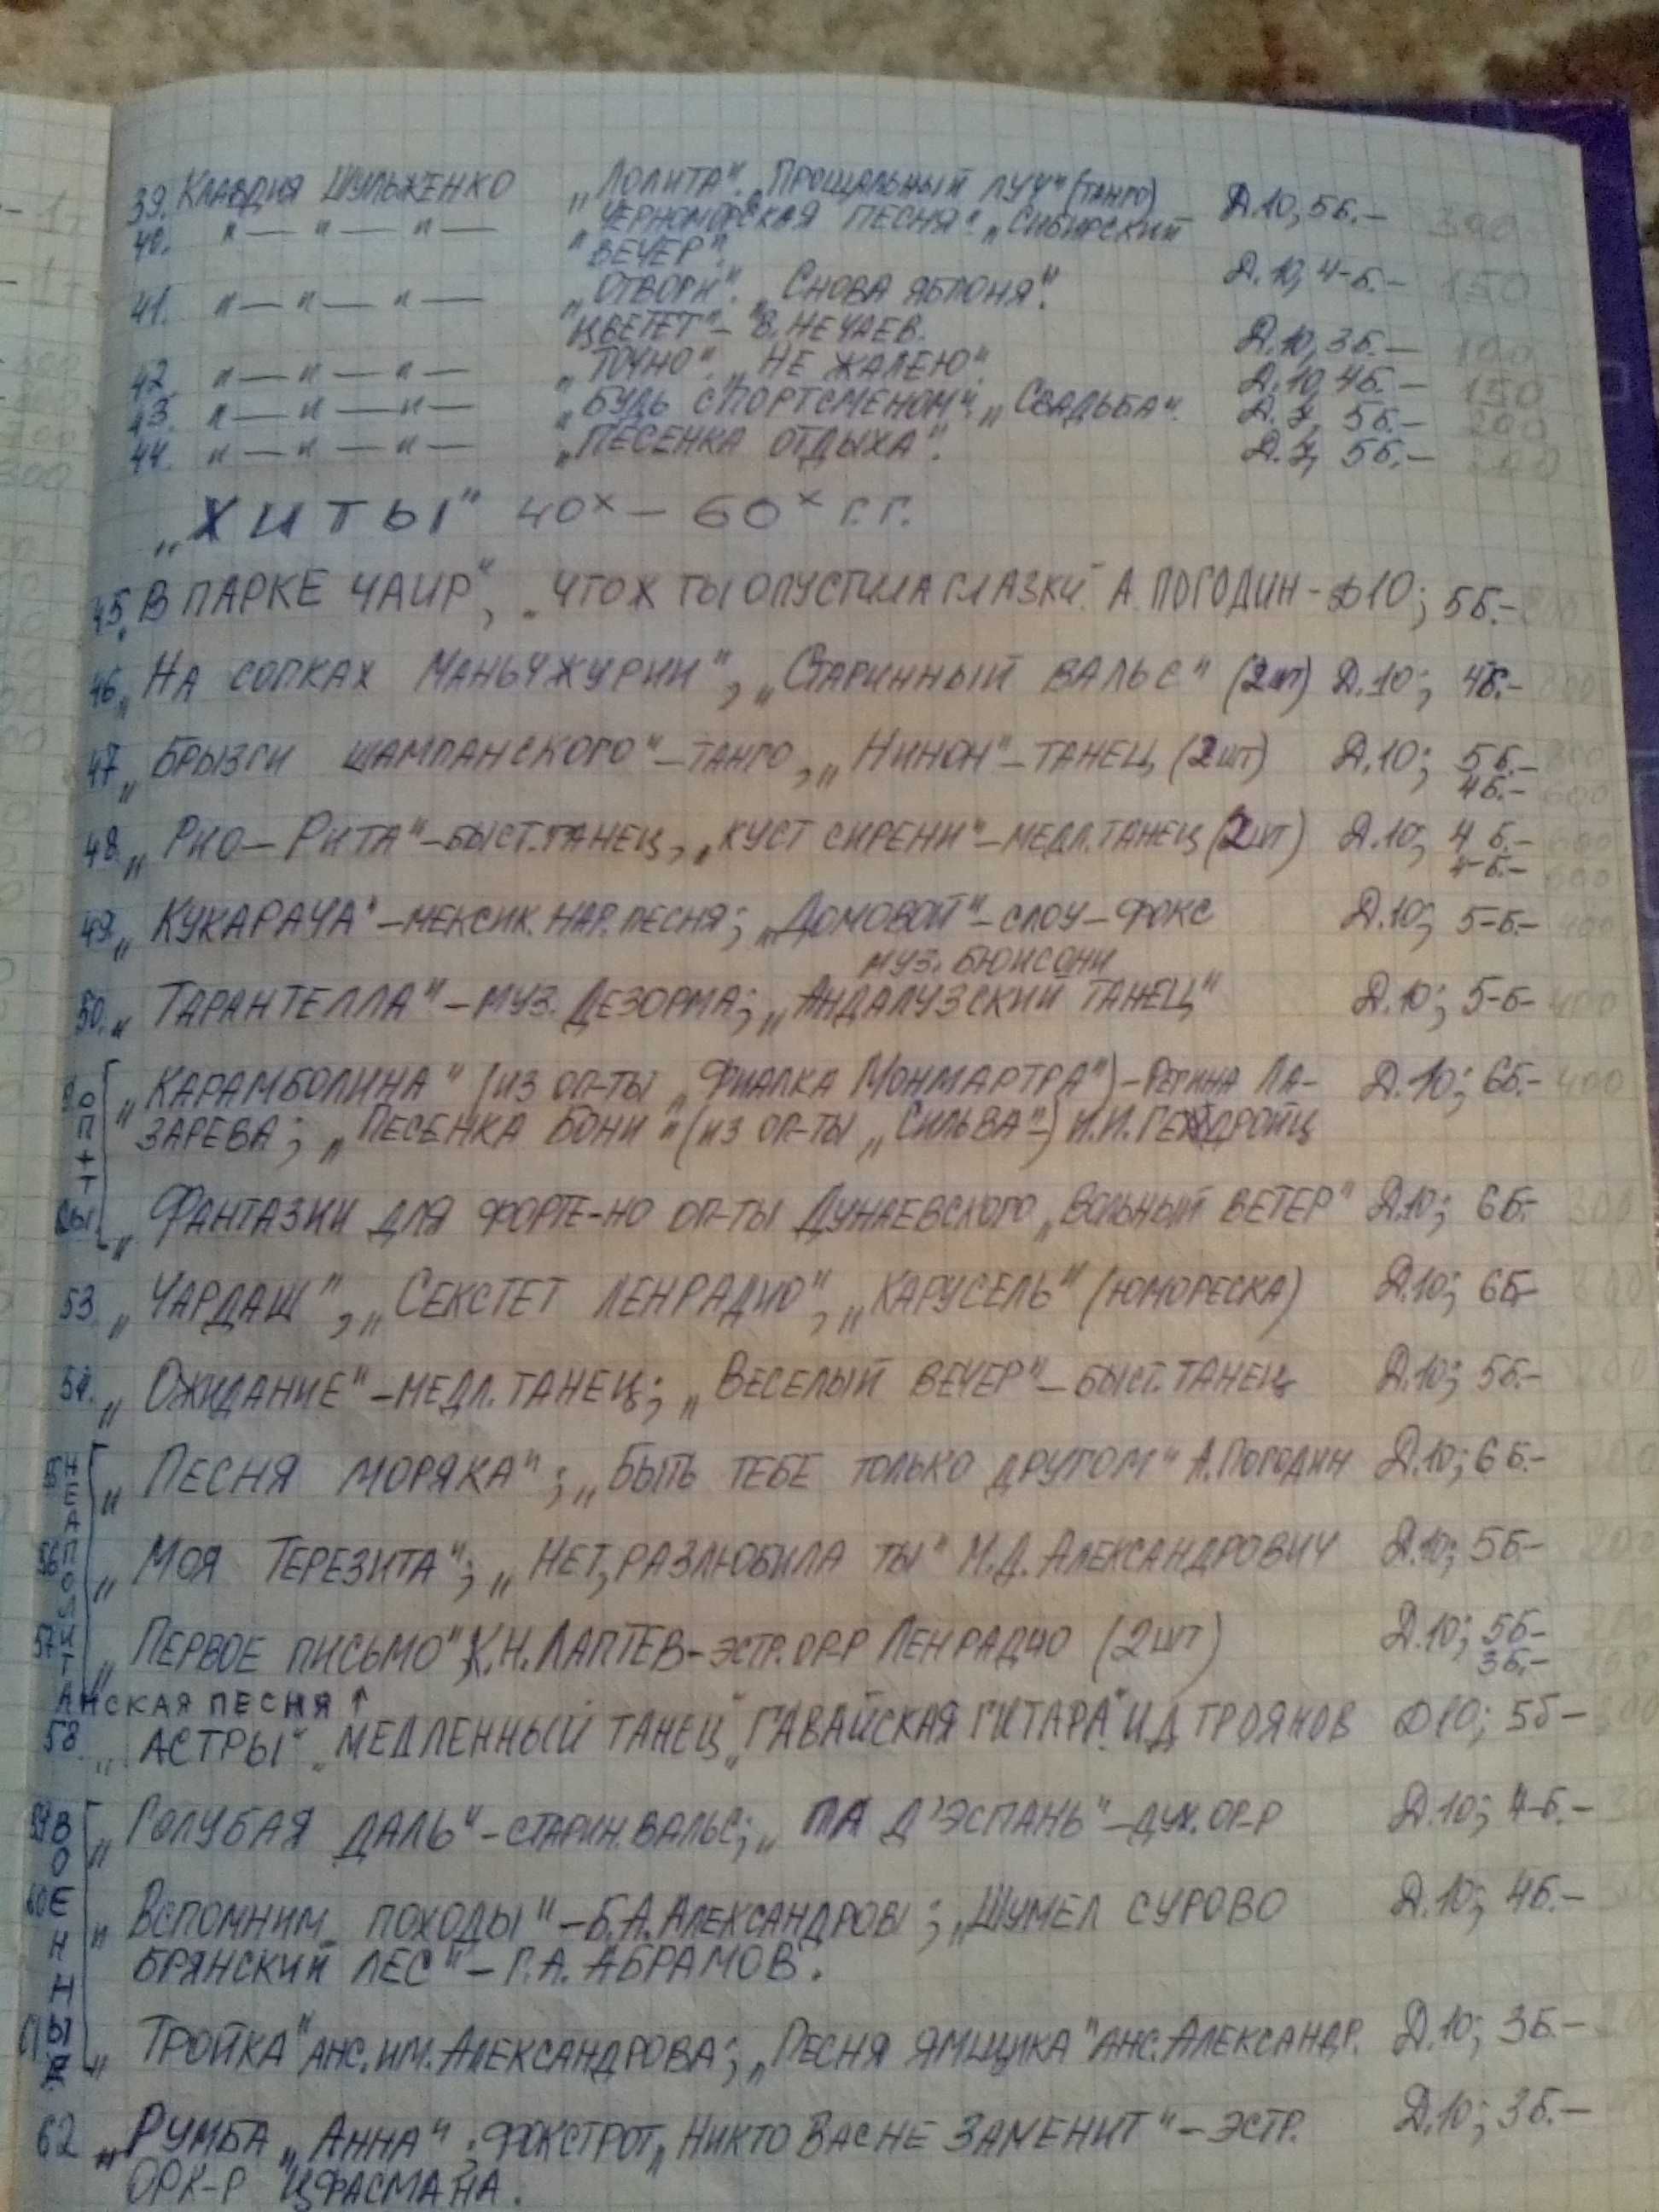 39. Клавдия Шульженко „Лолита“. „Прощальный луч“ (танго) Д.10, 5Б.- 300
40. "—"—"— „Черноморская песня“. „Сибирский
вечер“. Д.10, 4-Б.- 150
41. "—"—"— „Отвори“. „Снова яблоня“.
цветет“ – В. Нечаев. Д.10, 3Б.- 100
42. "—"—"— „Точно“. „Не жалею“. Д.10, 4Б.- 150
43. "—"—"— „Будь спортсменом“. „Свадьба“. Д.7, 5Б.- 200
44. "—"—"— „Песенка отдыха“. Д.7, 5Б.-
„ХИТЫ“ 40х – 60х г.г.
45. В ПАРКЕ ЧАИР“, „ЧТО Ж ТЫ ОПУСТИЛА ГЛАЗКИ“. А. ПОГОДИН - Д10; 5Б.-
46 „На сопках Маньчжурии“, „Старинный вальс“ (2шт) Д.10; 4Б.-
47 „Брызги шампанского“ – танго, „Нинон“ – танец (2шт) Д.10; 5Б.-
4Б.- 600
48 „Рио–Рита“ – быст. танец, „Куст сирени“ – медл. танец (2шт) Д.10; 4 Б.-
4-Б.- 600
49 „Кукарача“ – мексик. нар. песня; „Домовой“ – слоу – фокс Д.10; 5-Б.- 400
муз. Бюисони
50. „Тарантелла“ – муз. Дезорма; „Андалузский танец“ Д.10; 5-Б- 400
„Карамболина“ (из оп-ты „Фиалка Монмартра“) – Регина Ла- Д.10; 6Б.- 400
зарева; „Песенка Бони“ (из оп-ты „Сильва“) И.И. Гедройц
ОП+ТЫ
„Фантазии для форте-но оп-ты Дунаевского „Вольный ветер“ Д.10; 6Б.- 300
53 „Чардаш“, „Секстет Ленрадио“, „Карусель“ (юмореска) Д.10; 6Б-
54. „Ожидание“ – медл. танец; „Веселый вечер“ – быст. танец Д.10; 5Б.-
55 „Песня моряка“; „Быть тебе только другом“ А. Погодин Д.10; 6Б.-
56 „Моя Терезита“; „Нет, разлюбила ты“ М.Д. Александрович Д.10; 5Б.- 200
57 „Первое письмо“, К.Н. Лаптев – эстр. ор-р Ленрадио (2шт) Д.10; 5Б-
3Б.-
НЕАПОЛИТАНСКАЯ ПЕСНЯ ↑
58 „АСТРЫ“ „МЕДЛЕННЫЙ ТАНЕЦ „ГАВАЙСКАЯ ГИТАРА“ И.Д ТРОЯНОВ Д10; 5б-
59 „Голубая даль“ – старин. вальс; „ПА Д'ЭСПАНЬ“ – дух. ор-р Д.10; 4-Б.-
60 „Вспомним походы“ – Б.А. Александров; „Шумел сурово Д.10; 4Б.-
брянский лес“ – Г.А. Абрамов.
ВОЕННЫЕ
„Тройка“ анс. им. Александрова; „Песня ямщика“ анс. Александр. Д.10; 3Б.-
62 „Румба „Анна“; фокстрот „Никто вас не заменит“ – эстр. Д.10; 3Б.-
орк-р Цфасмана.